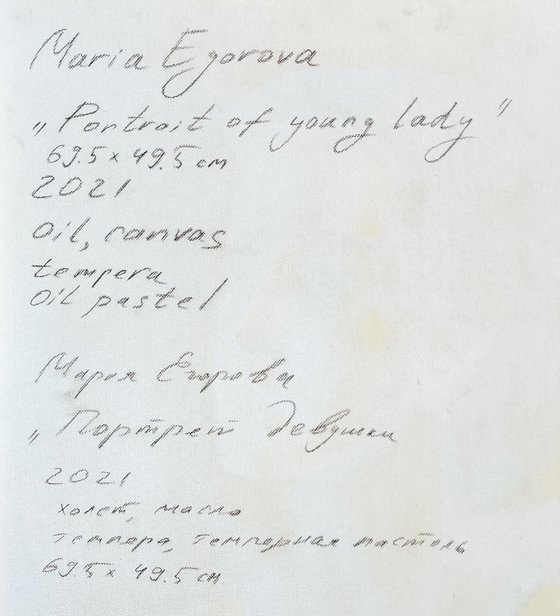 Maria Egorova
„Portrait of young lady"
69.5 x 49.5 см
2021
Oil, canvas
tempera
Oil pastel
Мария Егорова
„Портрет девушки
2021
холст, масло
темпера, темперная пастель
69.5 x 49.5 см